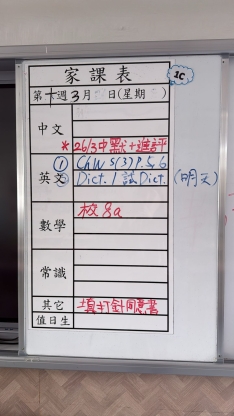 家課表
1C
第十週3月 日(星期 )
中文
*26/3中默+進評
英文
① Ch W S(3) P.5,6
② Dict. 1 試Dict. (明天)
數學
校8a
常識
其它
填打針同意書
值日生